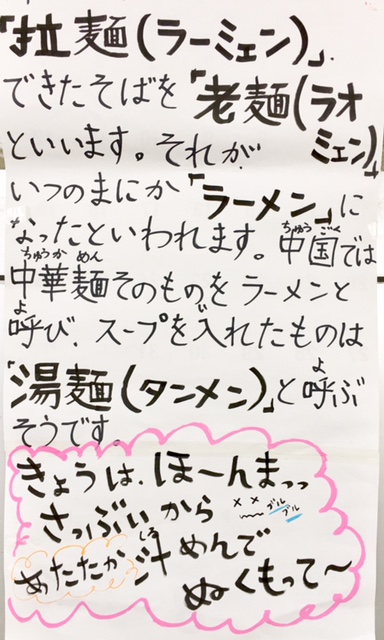 「拉麺(ラーミェン)」.
できたそばを「老麺(ラオミェン)」
といいます。それが
いつのまにか「ラーメン」に
なったといわれます。中国では
ちゅうごく
中華麺そのものをラーメンと
ちゅうかめん
呼び、スープを入れたものは
よ
い
「湯麺(タンメン)」と呼ぶ
よ
そうです。
きょうは、ほーんまっっ
さっぶいから
ブルブル
あったかた汁めんで
しる
ぬくもって〜